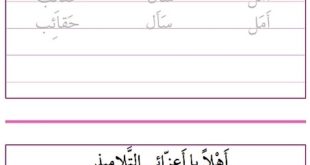 أَمَل سَأَل حَقَائِب
أَهْلاً يا أَعِزّائي التَّلاميذ